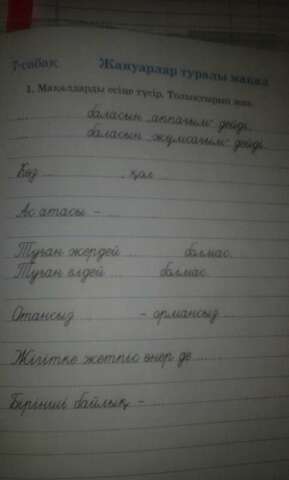 7-сабақ Жануарлар туралы мақал
1. Мақалдарды есіңе түсір. Толықтырып жаз.
... баласын „аппағым“ дейді,
... баласын „жұмсағым“ дейді.
Көз ... , қол ...
Ас атасы – ...
Туған жердей ... болмас,
Туған елдей ... болмас.
Отансыз ... – ормансыз ...
Жігітке жетпіс өнер де ...
Бірінші байлық – ...